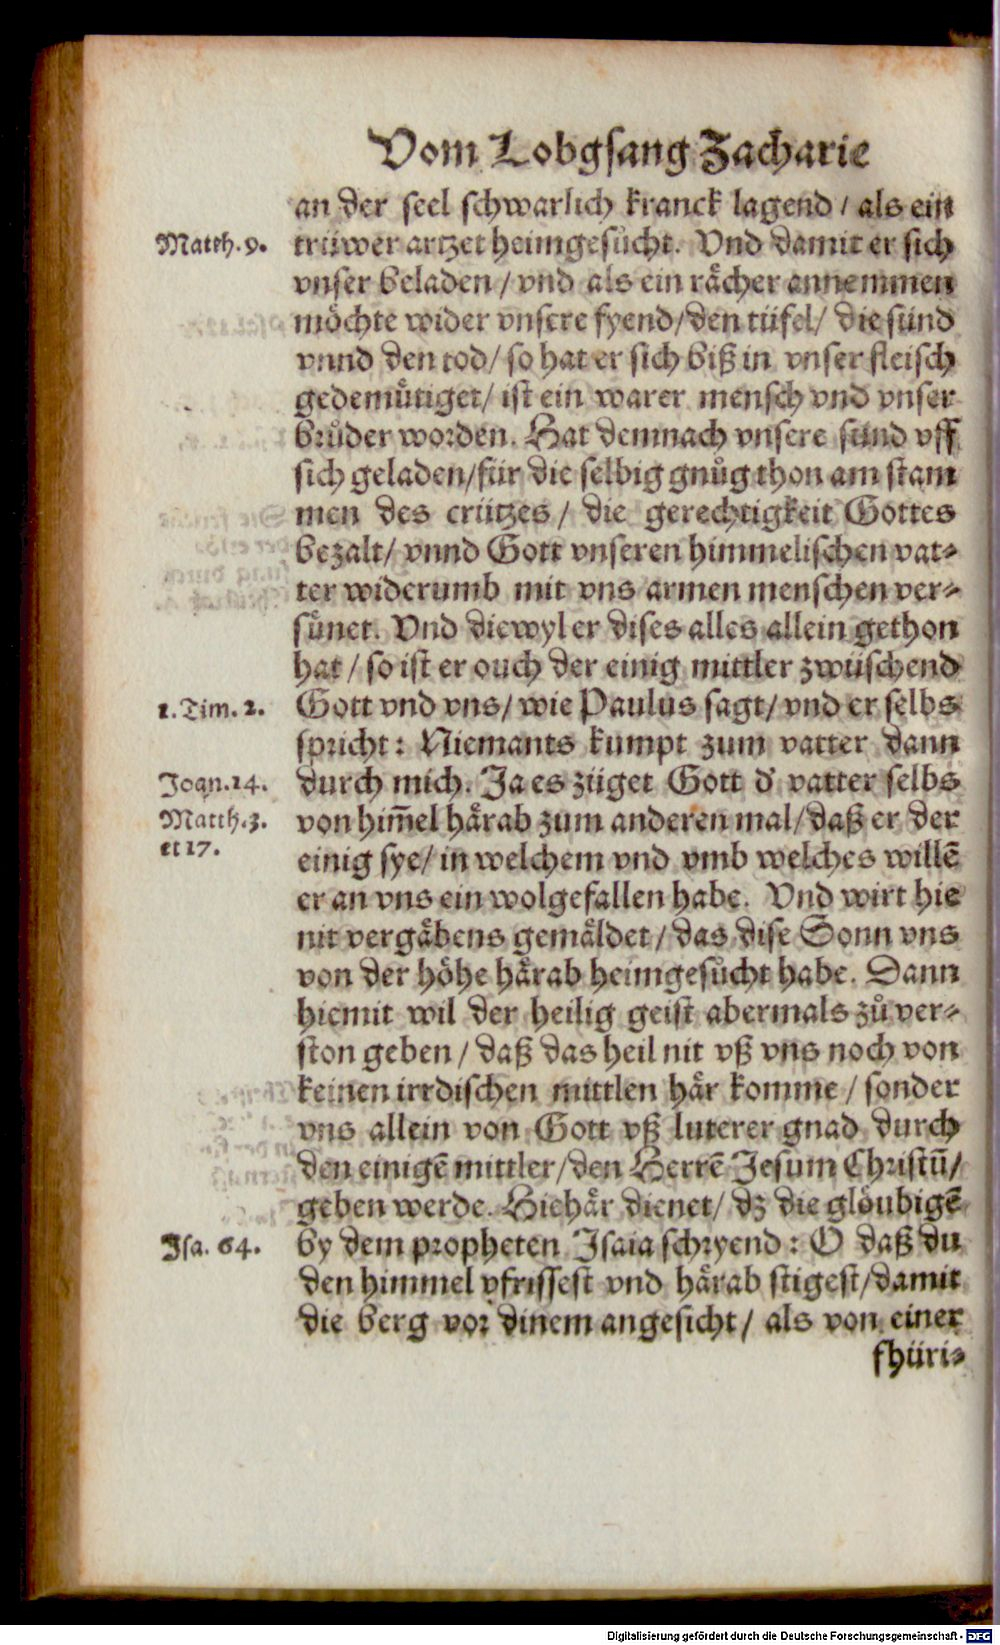 Vom Lobgsang Zacharie
an der seel schwarlich kranck lagend / als ein
Matth. 9.
trüwer artzet heimgesůcht. Vnd damit er sich
vnser beladen / vnd als ein rächer annemmen
möchte wider vnsere fyend / den tüfel / die sünd
vnnd den tod / so hat er sich biß in vnser fleisch
gedemütiget / ist ein warer mensch vnd vnser
brůder worden. Hat demnach vnsere sünd vff
sich geladen / für die selbig gnůg thon am stam
men des crützes / die gerechtigkeit Gottes
bezalt / vnnd Gott vnseren himmelischen vat⸗
ter widerumb mit vns armen menschen ver⸗
sünet. Vnd diewyl er dises alles allein gethon
hat / so ist er ouch der einig mittler zwüschend
1. Tim. 2.
Gott vnd vns / wie Paulus sagt / vnd er selbs
spricht : Niemants kumpt zum vatter dann
Joan. 14.
durch mich. Ja es züget Gott d' vatter selbs
Matth. 3.
von him̄el härab zum anderen mal / daß er der
et 17.
einig sye / in welchem vnd vmb welches willē
er an vns ein wolgefallen habe. Vnd wirt hie
nit vergäbens gemäldet / das dise Sonn vns
von der höhe härab heimgesůcht habe. Dann
hiemit wil der heilig geist abermals zů ver⸗
ston geben / daß das heil nit vß vns noch von
keinen irrdischen mittlen här komme / sonder
vns allein von Gott vß luterer gnad durch
den einigē mittler / den Herrē Jesum Christū /
geben werde. Hiehär dienet / dz die glöubigē
Isa. 64.
by dem propheten Isaia schryend : O daß du
den himmel vfrissest vnd härab stigest / damit
die berg vor dinem angesicht / als von einer
fhüri⸗
Digitalisierung gefördert durch die Deutsche Forschungsgemeinschaft - DFG